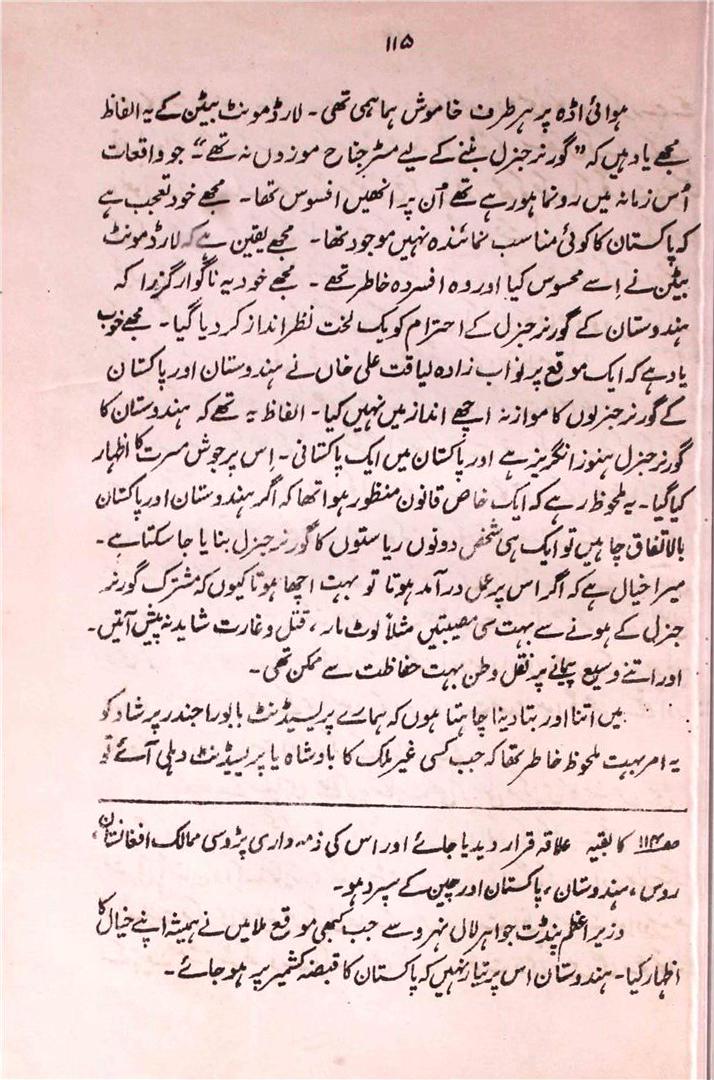 ۱۱۵
ہوائی اڈہ پر ہر طرف خاموش ہماہمی تھی ۔ لارڈ مونٹ بیٹن کے یہ الفاظ
مجھے یاد ہیں کہ " گورنر جنرل بننے کے لیے مسٹر جناح موزوں نہ تھے "۔ جو واقعات
اُس زمانہ میں رونما ہو رہے تھے اُن پر انھیں افسوس تھا۔ مجھے خود تعجب ہے
کہ پاکستان کا کوئی مناسب نمائندہ نہیں موجود تھا۔ مجھے یقین ہے کہ لارڈ مونٹ
بیٹن نے اِسے محسوس کیا اور وہ افسردہ خاطر تھے ۔ مجھے خود یہ ناگوار گزرا کہ
ہندوستان کے گورنر جنرل کے احترام کو یک لخت نظر انداز کر دیا گیا۔ مجھے خوب
یاد ہے کہ ایک موقع پر نواب زادہ لیاقت علی خاں نے ہندوستان اور پاکستان
کے گورنر جنرلوں کا موازنہ اچھے انداز میں نہیں کیا۔ الفاظ یہ تھے کہ ہندوستان کا
گورنر جنرل ہنوز انگریز ہے اور پاکستان میں ایک پاکستانی ۔ اِس پر جوش مسرت کا اظہار
کیا گیا۔ یہ ملحوظ رہے کہ ایک خاص قانون منظور ہوا تھا کہ اگر ہندوستان اور پاکستان
بالاتفاق چاہیں تو ایک ہی شخص دونوں ریاستوں کا گورنر جنرل بنایا جا سکتا ہے ۔
میرا خیال ہے کہ اگر اس پر عمل درآمد ہوتا تو بہت اچھا ہوتا کیوں کہ مشترک گورنر
جنرل کے ہونے سے بہت سی مصیبتیں مثلاً لوٹ مار ، قتل و غارت شاید نہ پیش آتیں۔
اور اتنے وسیع پیمانے پر نقل وطن بہت حفاظت سے ممکن تھی ۔
میں اتنا اور بتا دینا چاہتا ہوں کہ ہمارے پریسیڈنٹ بابو راجندر پرشاد کو
یہ امر بہت ملحوظ خاطر تھا کہ جب کسی غیر ملک کا بادشاہ یا پریسیڈنٹ دہلی آئے تو
صفحہ ۱۱۴ کا بقیہ علاقہ قرار دیدیا جائے اور اس کی ذمہ داری پڑوسی ممالک افغانستان ،
روس ، ہندوستان ، پاکستان اور چین کے سپرد ہو۔
وزیر اعظم پنڈت جواہر لال نہرو سے جب کبھی موقع ملا میں نے ہمیشہ اپنے خیال کا
اظہار کیا۔ ہندوستان اس پر تیار نہیں کہ پاکستان کا قبضہ کشمیر پر ہو جائے ۔